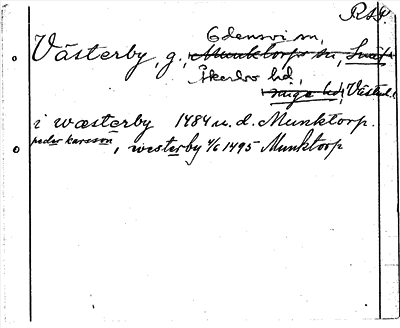 RAP
Odensvi sn,
Västerby, g., Munktorps sn, Snäf-
Åkerbo hd,
ringe hd, Västml.
i wæsterby 1484 u. d. Munktorp.
peder karsson, westerby 4/6 1495 Munktorp